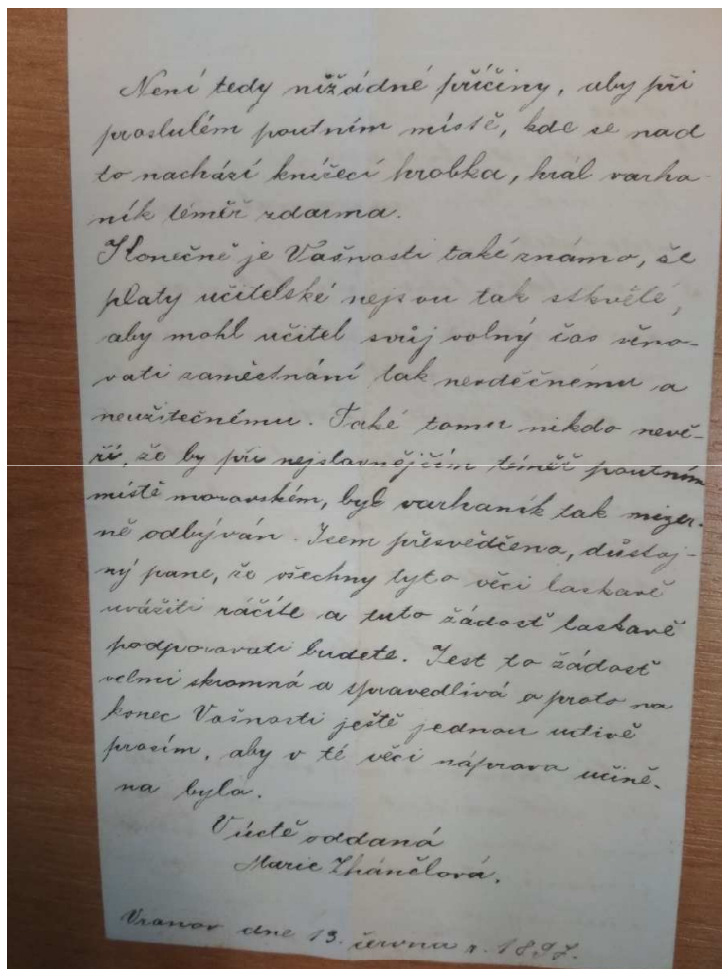 Není tedy nižádné příčiny, aby při
proslulém poutním místě, kde se nad
to nachází knížecí hrobka, hrál varha-
ník téměř zdarma.
Konečně je Vašnosti také známo, že
platy učitelské nejsou tak skvělé,
aby mohl učitel svůj volný čas věno-
vati zaměstnání tak nevděčnému a
neužitečnému. Také tomu nikdo nevě-
ří, že by při nejslavnějším téměř poutním
místě moravském, byl varhaník tak mizer-
ně odbýván. Jsem přesvědčena, důstoj-
ný pane, že všechny tyto věci laskavě
uvážiti ráčíte a tuto žádosť laskavě
podporovati budete. Jest to žádosť
velmi skromná a spravedlivá a proto na
konec Vašnosti ještě jednou uctivě
prosím, aby v té věci náprava učině-
na byla.
V úctě oddaná
Marie Zhánělová.
Vranov dne 13. června r. 1897.